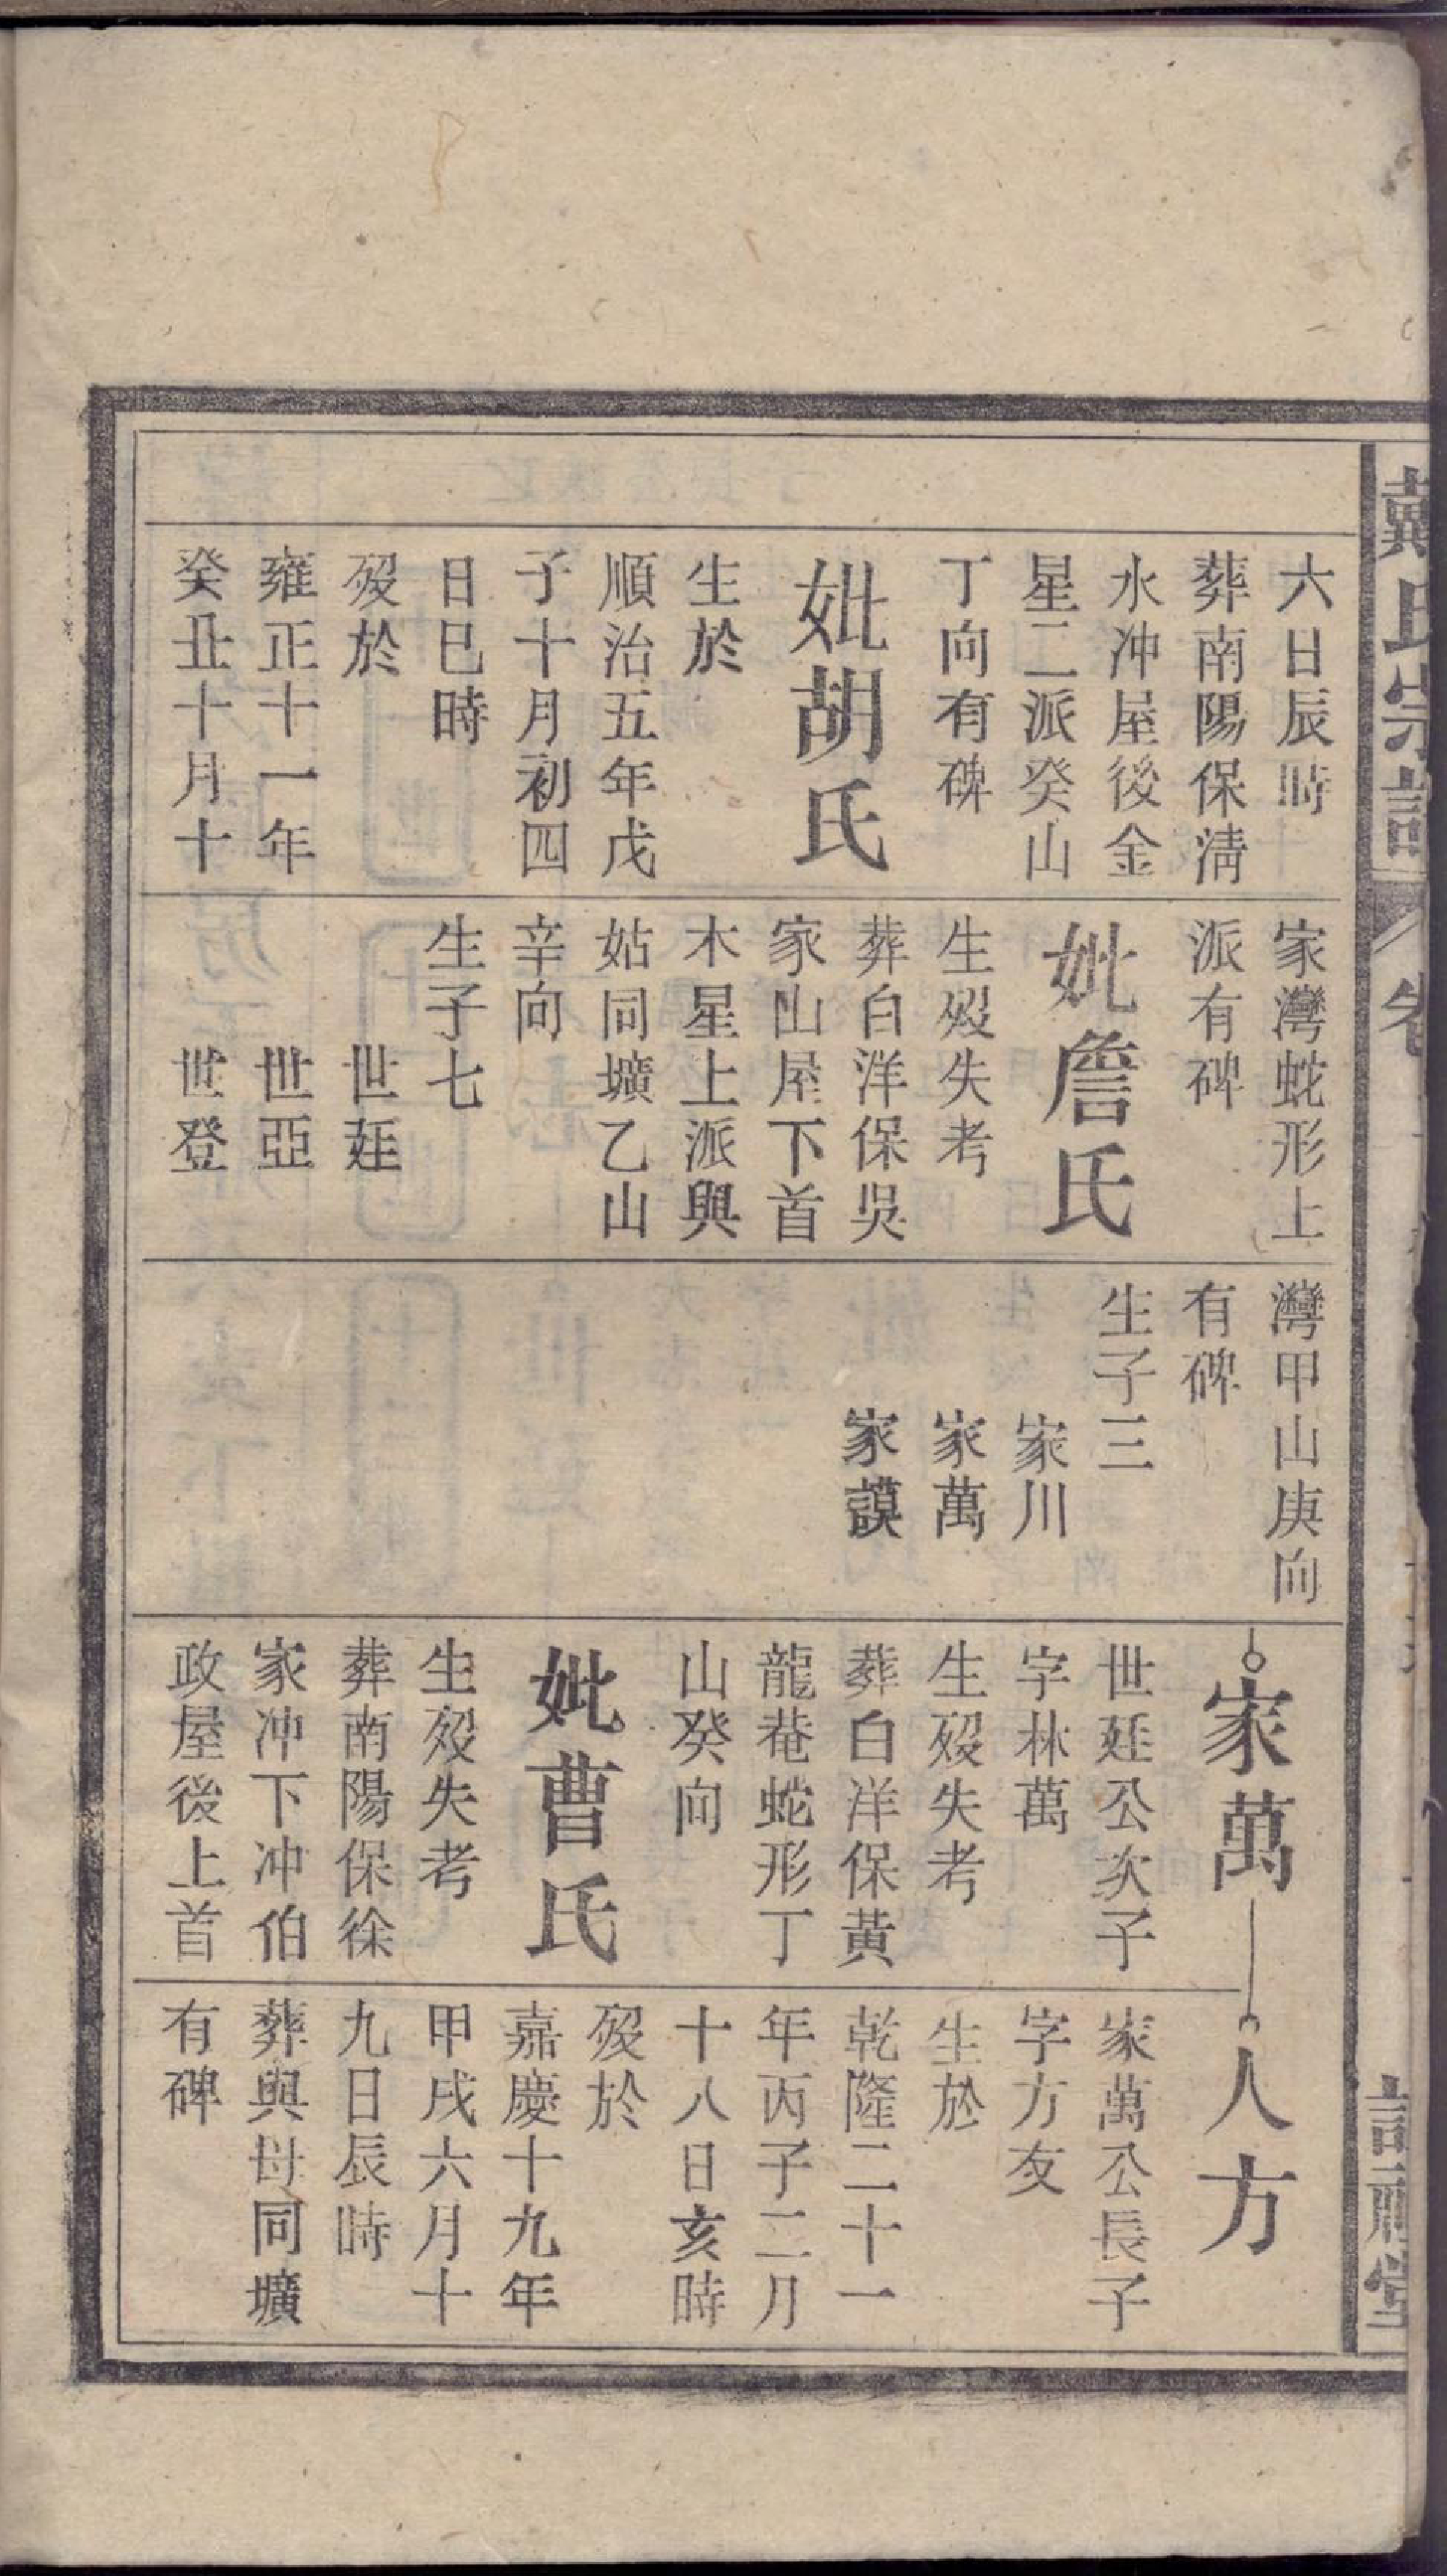 戴氏宗譜
卷
六日辰時
葬南陽保淸
水冲屋後金
星二派癸山
丁向有碑
妣胡氏
生於
順治五年戊
子十月初四
日巳時
歿於
雍正十一年
癸丑十月十
家灣蛇形上
派有碑
妣詹氏
生歿失考
葬白洋保吳
家山屋下首
木星上派與
姑同壙乙山
辛向
生子七
世廷
世亞
世登
灣甲山庚向
有碑
生子三
家川
家萬
家謨
家萬
世廷公次子
字林萬
生歿失考
葬白洋保黃
龍菴蛇形丁
山癸向
妣曹氏
生歿失考
葬南陽保徐
家冲下冲伯
政屋後上首
人方
家萬公長子
字方友
生於
乾隆二十一
年丙子二月
十八日亥時
歿於
嘉慶十九年
甲戌六月十
九日辰時
葬與母同壙
有碑
堂